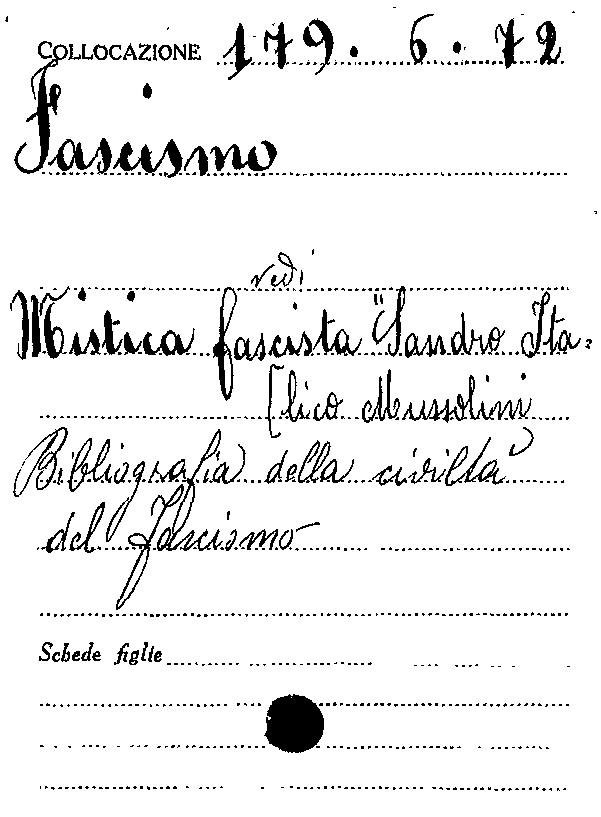 COLLOCAZIONE 179. 6. 72
Fascismo
vedi
Mistica fascista "Sandro Ita=
[lico Mussolini
Bibliografia della civiltà
del fascismo
Schede figlie